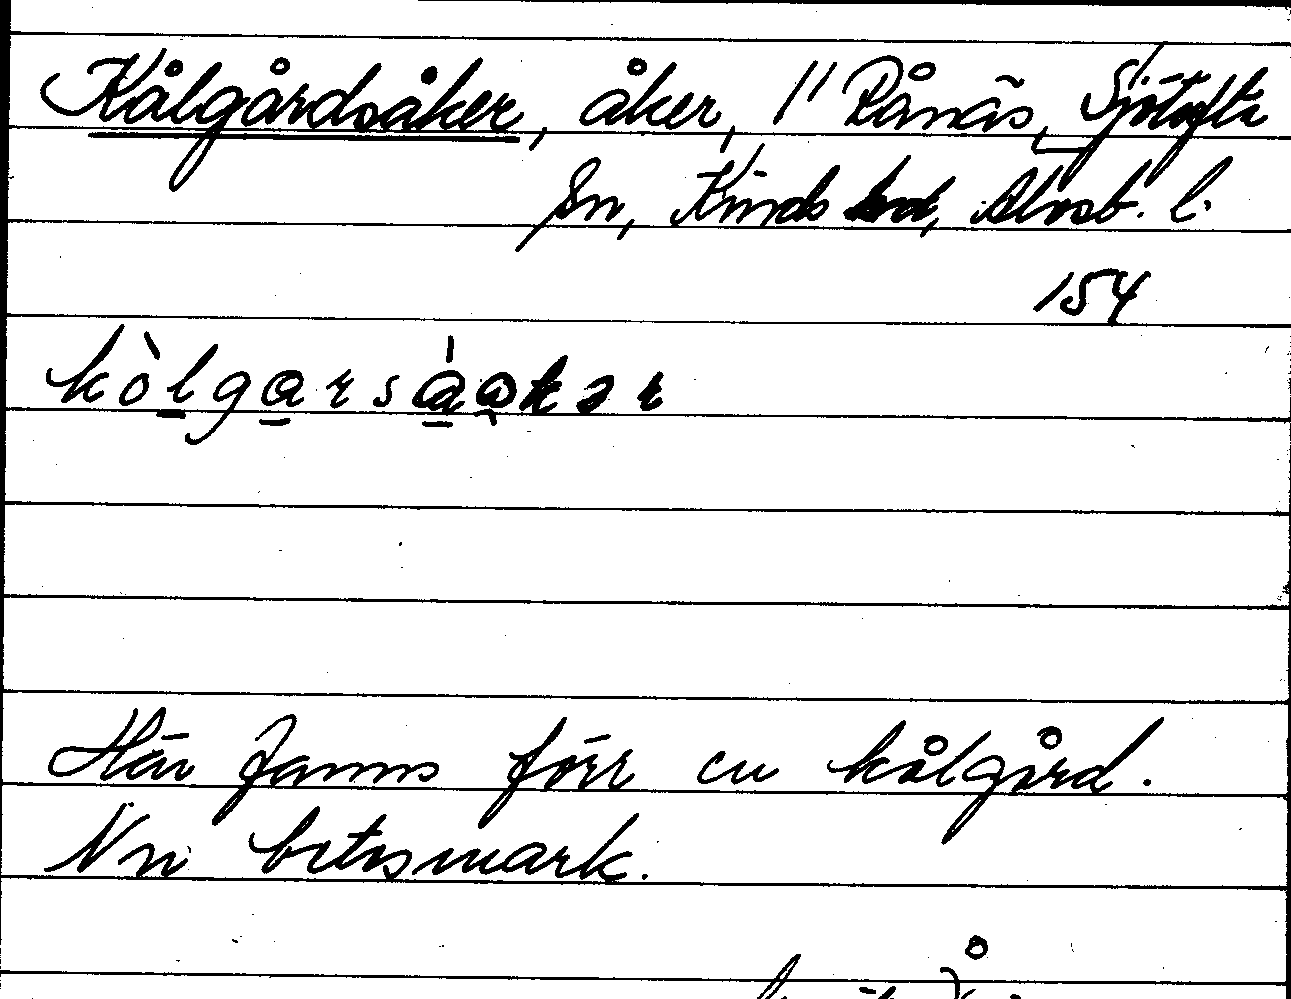 Kålgårdsåker, åker, 1/1 Rånäs, Sjötofta
sn, Kinds hd, Älvsb. l.
154
kòlgarsàakər
Här fanns förr en kålgård.
Nu betesmark.